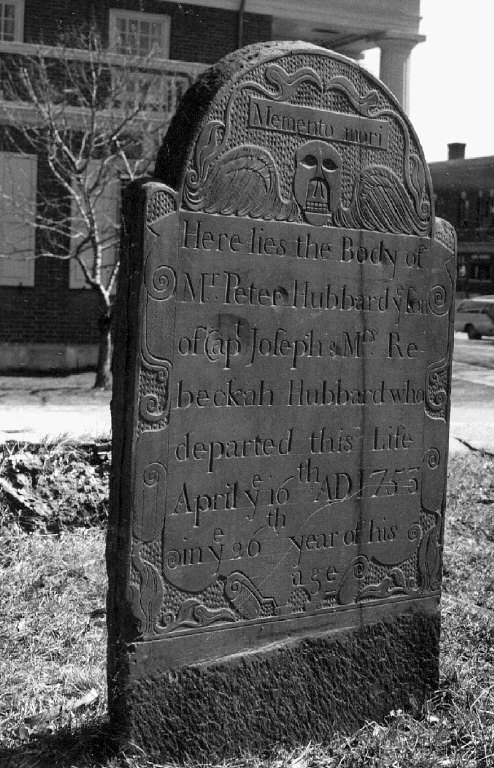 Memento mori
Here lies the Body of
Mr. Peter Hubbard yͤ ſon
of Capt Joſeph & Mrs Re-
beckah Hubbard who
departed this Life
April yͤ 16th AD 1753
in yͤ 26th year of his
age